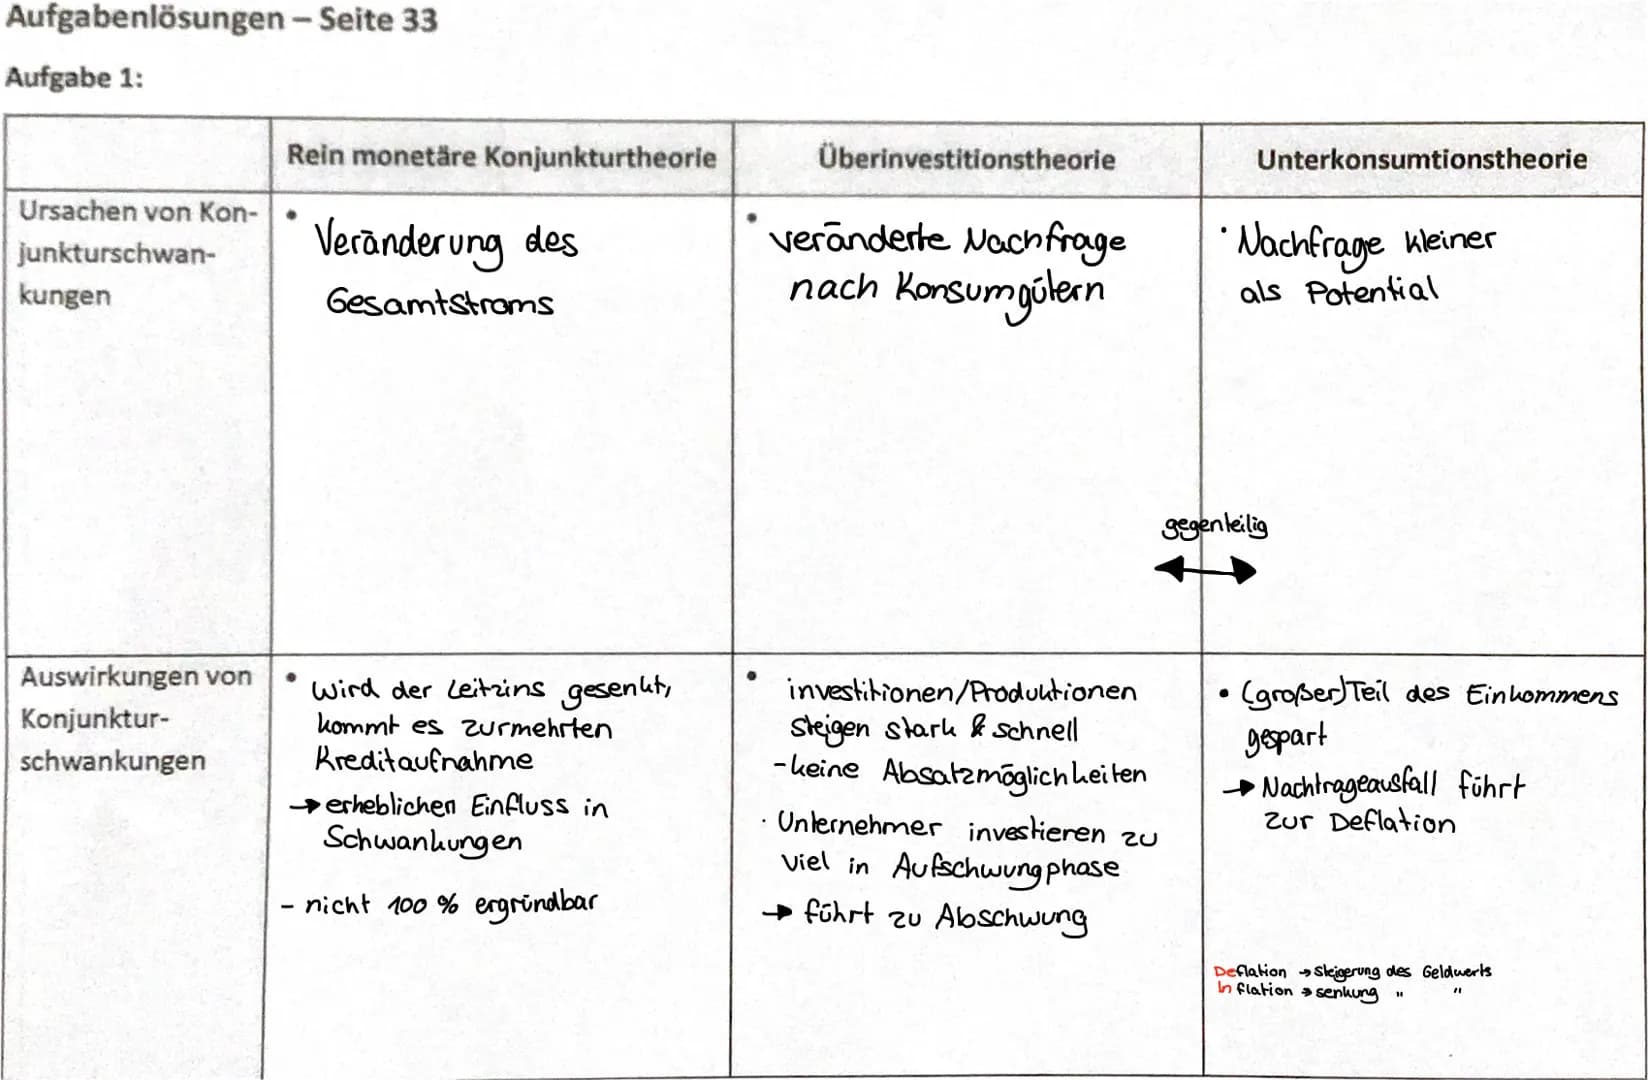 Aufgabenlösungen – Seite 33
Aufgabe 1:
Rein monetäre Konjunkturtheorie
Überinvestitionstheorie
Unterkonsumtionstheorie
Ursachen von Kon-
junkturschwan-
kungen
• Veränderung des
Gesamtstroms
• veränderte Nachfrage
nach Konsumgütern
• Nachfrage kleiner
als Potential
gegenteilig
Auswirkungen von
Konjunktur-
schwankungen
• wird der Leitzins gesenkt,
kommt es zur mehrten
Kreditaufnahme
→ erheblichen Einfluss in
Schwankungen
- nicht 100 % ergründbar
• investitionen/Produktionen
steigen stark & schnell
- keine Absatzmöglichkeiten
· Unternehmer investieren zu
viel in Aufschwungphase
→ führt zu Abschwung
• (großer) Teil des Einkommens
gespart
→ Nachfrageausfall führt
zur Deflation
Deflation → Steigerung des Geldwerts
Inflation → senkung " "